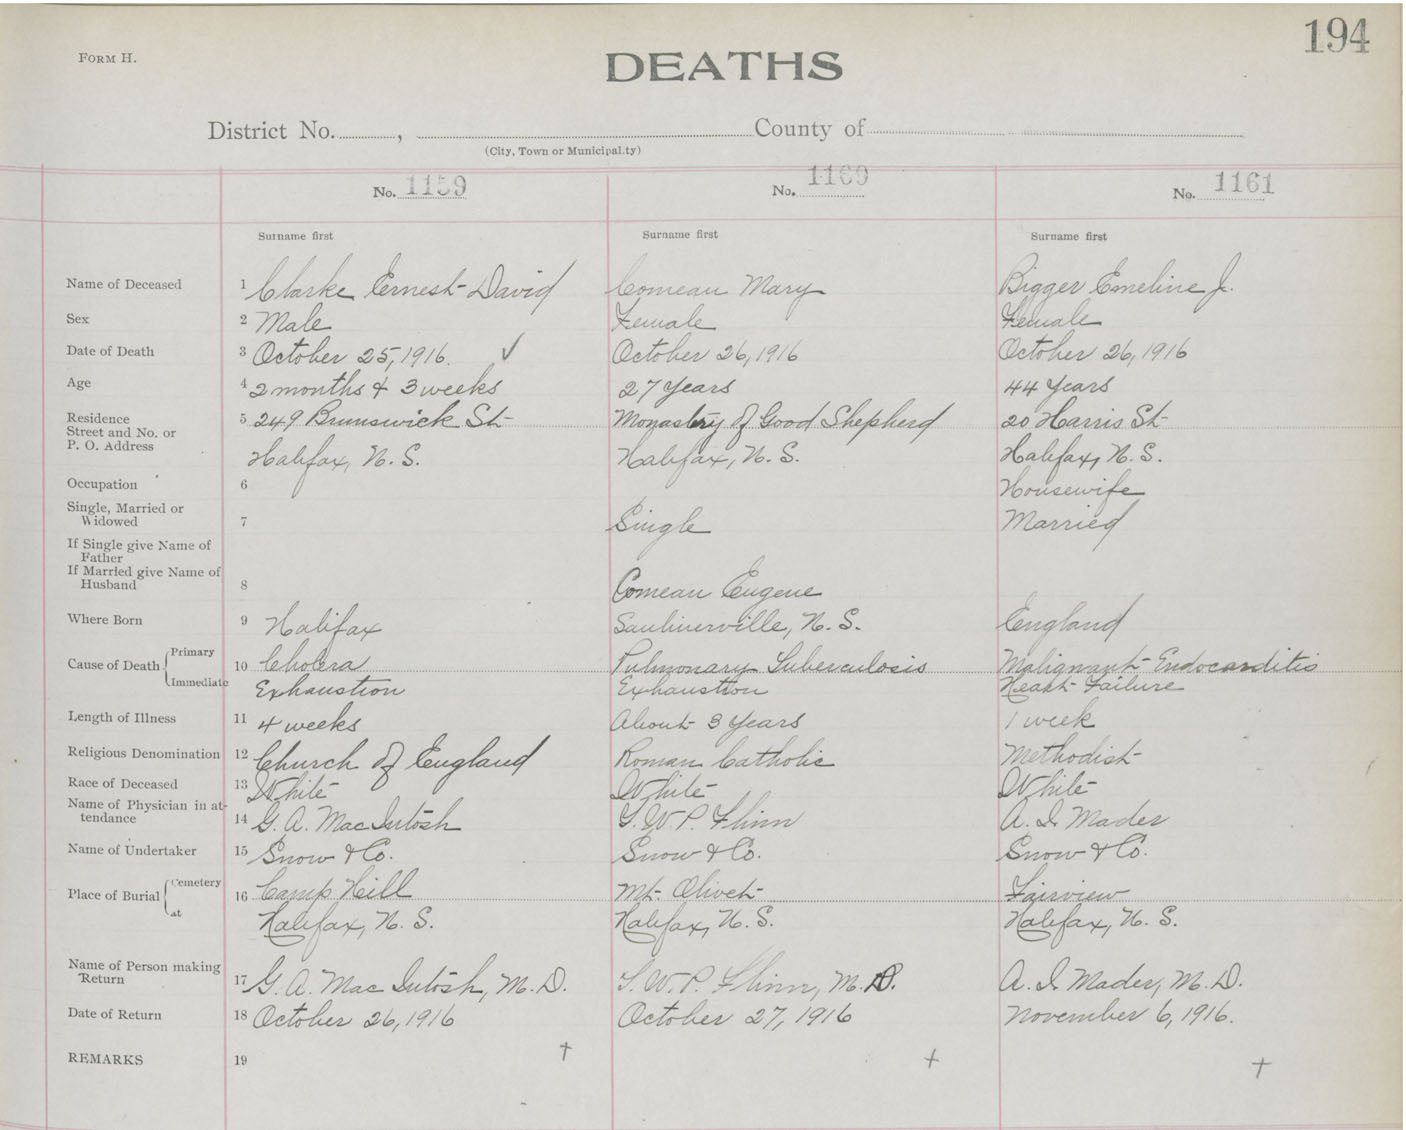 194
FORM H.
DEATHS
District No. , County of
(City, Town or Municipality)
No. 1159 No. 1160 No. 1161
Surname first Surname first Surname first
Name of Deceased 1 Clarke Ernest David Comeau Mary Bigger Emeline J.
Sex 2 Male Female Female
Date of Death 3 October 25, 1916. ✓ October 26, 1916 October 26, 1916
Age 4 2 months & 3 weeks 27 Years 44 Years
Residence 5 249 Brunswick St Monastery of Good Shepherd 20 Harris St
Street and No. or
P. O. Address Halifax, N. S. Halifax, N. S. Halifax, N. S.
Occupation 6 Housewife
Single, Married or
Widowed 7 Single Married
If Single give Name of
Father
If Married give Name of
Husband 8 Comeau Eugene
Where Born 9 Halifax Saulnierville, N. S. England
Cause of Death Primary 10 Cholera Pulmonary Tuberculosis Malignant Endocarditis
Immediate Exhaustion Exhaustion Heart Failure
Length of Illness 11 4 weeks About 3 Years 1 week
Religious Denomination 12 Church of England Roman Catholic Methodist
Race of Deceased 13 White White White
Name of Physician in at-
tendance 14 G. A. MacIntosh T. W. P. Flinn A. I. Mader
Name of Undertaker 15 Snow & Co. Snow & Co. Snow & Co.
Place of Burial Cemetery 16 Camp Hill Mt. Olivet Fairview
at Halifax, N. S. Halifax, N. S. Halifax, N. S.
Name of Person making
Return 17 G. A. MacIntosh, M. D. T. W. P. Flinn, M. D. A. I. Mader, M. D.
Date of Return 18 October 26, 1916 October 27, 1916 November 6, 1916.
REMARKS 19 † † †